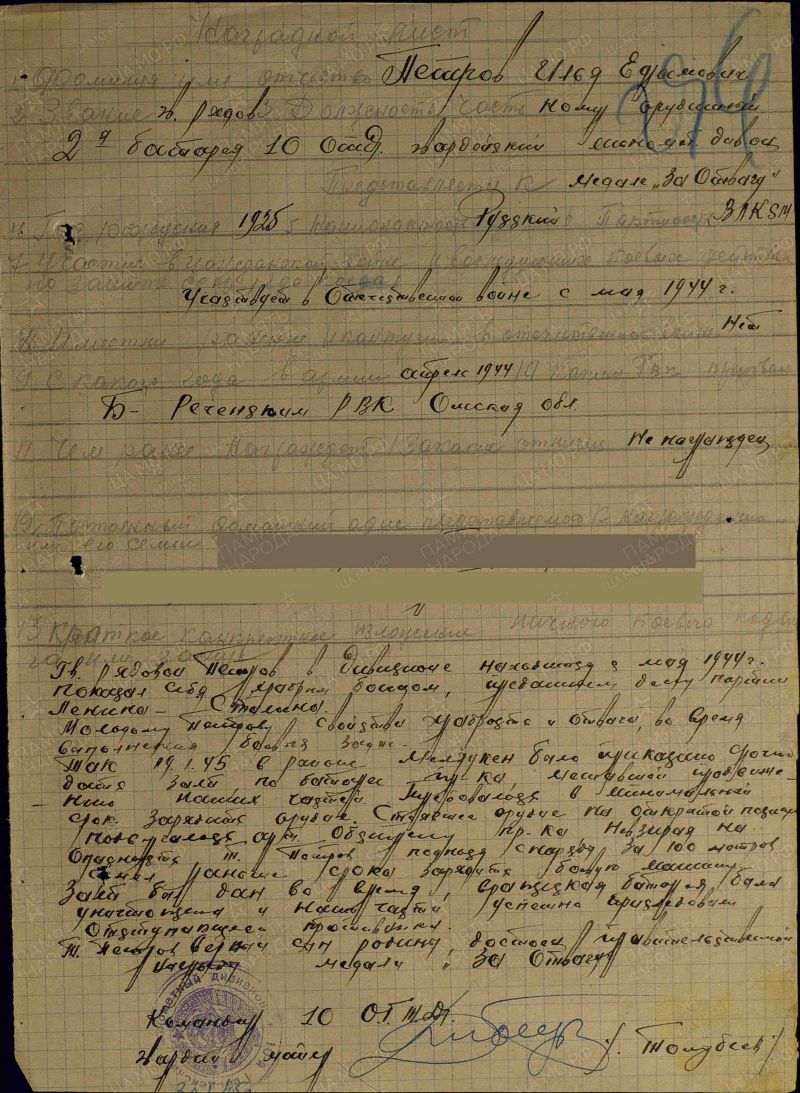 Наградной лист
1. Фамилия имя отчество Петров Илья Ефимович
2. Звание гв. рядов 3 Должность часть Ному орудийный
2я батарея 10 Отд. гвардейский миномет. дивиз
Представляется к медале „За Отвагу"
4. Год рождения 1925 5 Национальность Руззкий 6 Партийность ВЛКSM
7 Участие в гражданской войне и последующие боевых действиях
по защите
Участвует в Отечественной войне с мая 1944 г.
8 Имеет ли ранения и контузии в отечественной войне Нет
9 С какого года в армии апрель 1944 10 Каким Рвк призван
Б- Реченским РВК Омская обл.
11 Чем ранее Награжден / За какие отличие Не награжден
12. Постоянный домашний адрес представляемого к награждению
или его семьи
13 Краткое конкретное изложение личного боевого подвига
Гв. рядовой Петров в Дивизионе находится с мая 1944 г.
показал себя храбрым бойцом, преданным делу партии
Ленина – Сталина.
Молодому Петрову свойства храбрость и отвага, во время
выполнения боевых задач.
Так 19.1.45 в районе было приказано срочно
дать залп по батареи пр-ка мешавшей продвиже-
-нию наших частей. Требовалось в минимальный
срок зарядить орудие. Стоявшее орудие на открытой позиции
подвергалось арт Обстрелу пр-ка Невзирая на
Опасность т. Петров поднося снаряды за 100 метров
сумел раньше срока зарядить боевую машину.
Залп был дан во время, батарея была
уничтожена и наши части успешно преследовали
Отступающего противника.
Т. Петров верный сын родины, достоен правительственной
награды медали „За Отвагу
Командир 10 О.Г.М.Дн.
Гвардии майор /Толубеев/